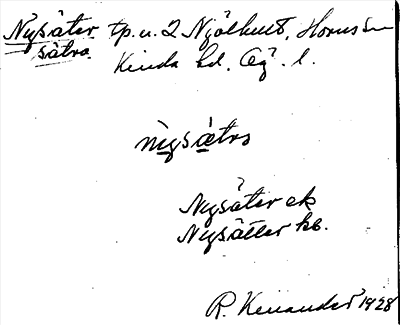 Nysäter tp. u. 2 Njölhult, Horns sn
sätra. Kinda hd. Ög. l.
nysætrọ
Nysäter ek
Nysätter kb.
R. Kenander 1928